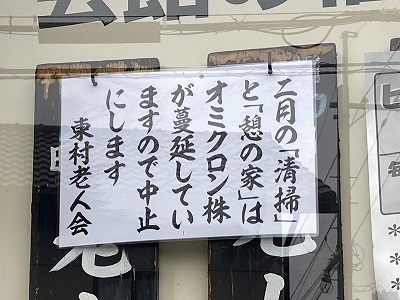 二月の「清掃」
と「憩の家」は
オミクロン株
が蔓延してい
ますので中止
にします
東村老人会